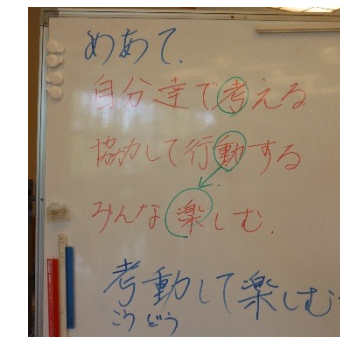 めあて.
自分達で考える
協力して行動する
みんな楽しむ.
考動して楽しむ
こうどう